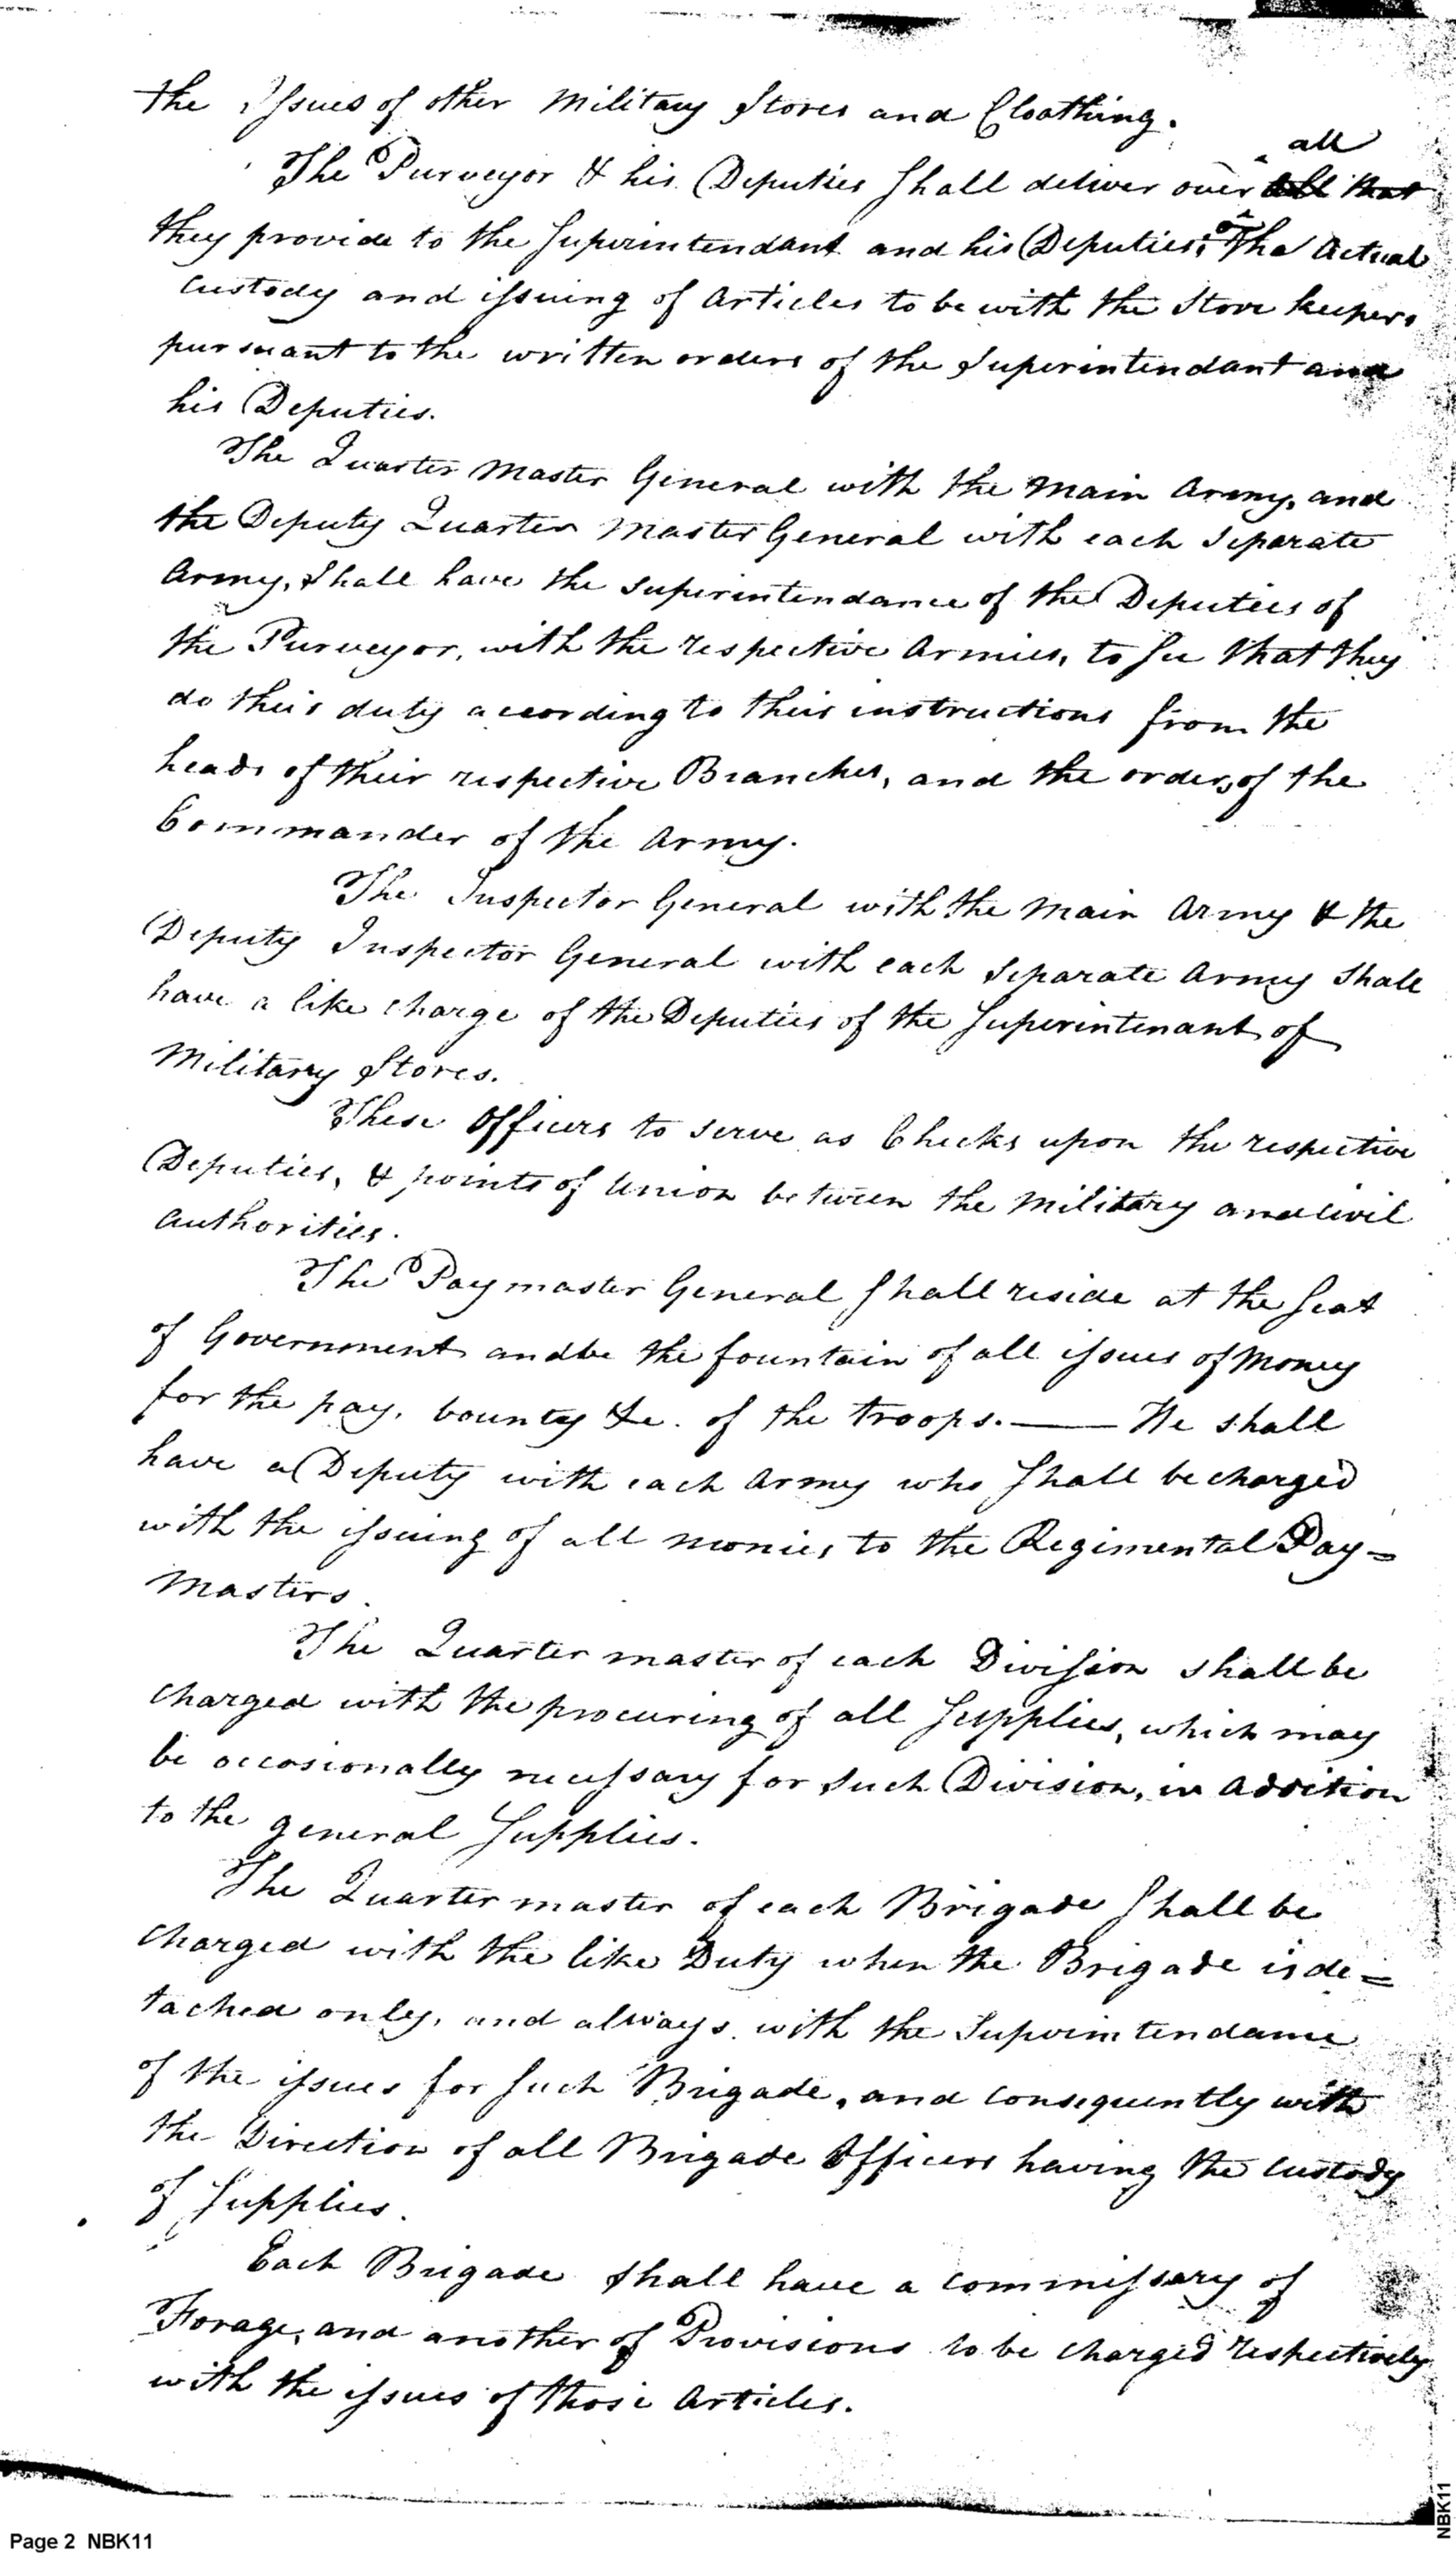 the Issues of other Military Stores and Cloathing.
all
The Purveyor & his Deputies Shall deliver over that
they provide to the Superintendant and his Deputies: The Actual
Custody and issuing of Articles to be with the Store keepers
pursuant to the written orders of the Superintendant and
his Deputies.
The Quarter Master General with the Main Army, and
the Deputy Quarter Master General with each Separate
Army, Shall have the Superintendance of the Deputies of
the Purveyor, with the respective Armies, to see that they
do their duty according to their instructions from the
heads of their respective Branches, and the orders of the
Commander of the Army.
The Inspector General with the Main Army & the
Deputy Inspector General with each Separate Army Shall
have a like charge of the Deputies of the Superintenant of
Military Stores.
These Officers to serve as Checks upon the respective
Deputies, & points of Union between the Military and Civil
Authorities.
The Paymaster General Shall reside at the Seat
of Government and be the fountain of all issues of Money
for the pay, bounty &c. of the troops. —— He shall
have a Deputy with each Army who Shall be charged
with the issuing of all monies to the Regimental Pay=
Masters.
The Quarter master of each Division shall be
Charged with the procuring of all Supplies, which may
be occasionally necessary for Such Division, in Addition
to the general Supplies.
The Quarter master of each Brigade Shall be
Charged with the like Duty when the Brigade is de=
tached only, and always with the Superintendance
of the issues for Such Brigade, and Consequently with
the Direction of all Brigade Officers having the Custody
of Supplies.
Each Brigade Shall have a Commissary of
Forage, and another of Provisions to be Charged respectively
with the issues of those Articles.
Page 2 NBK11
NBK11